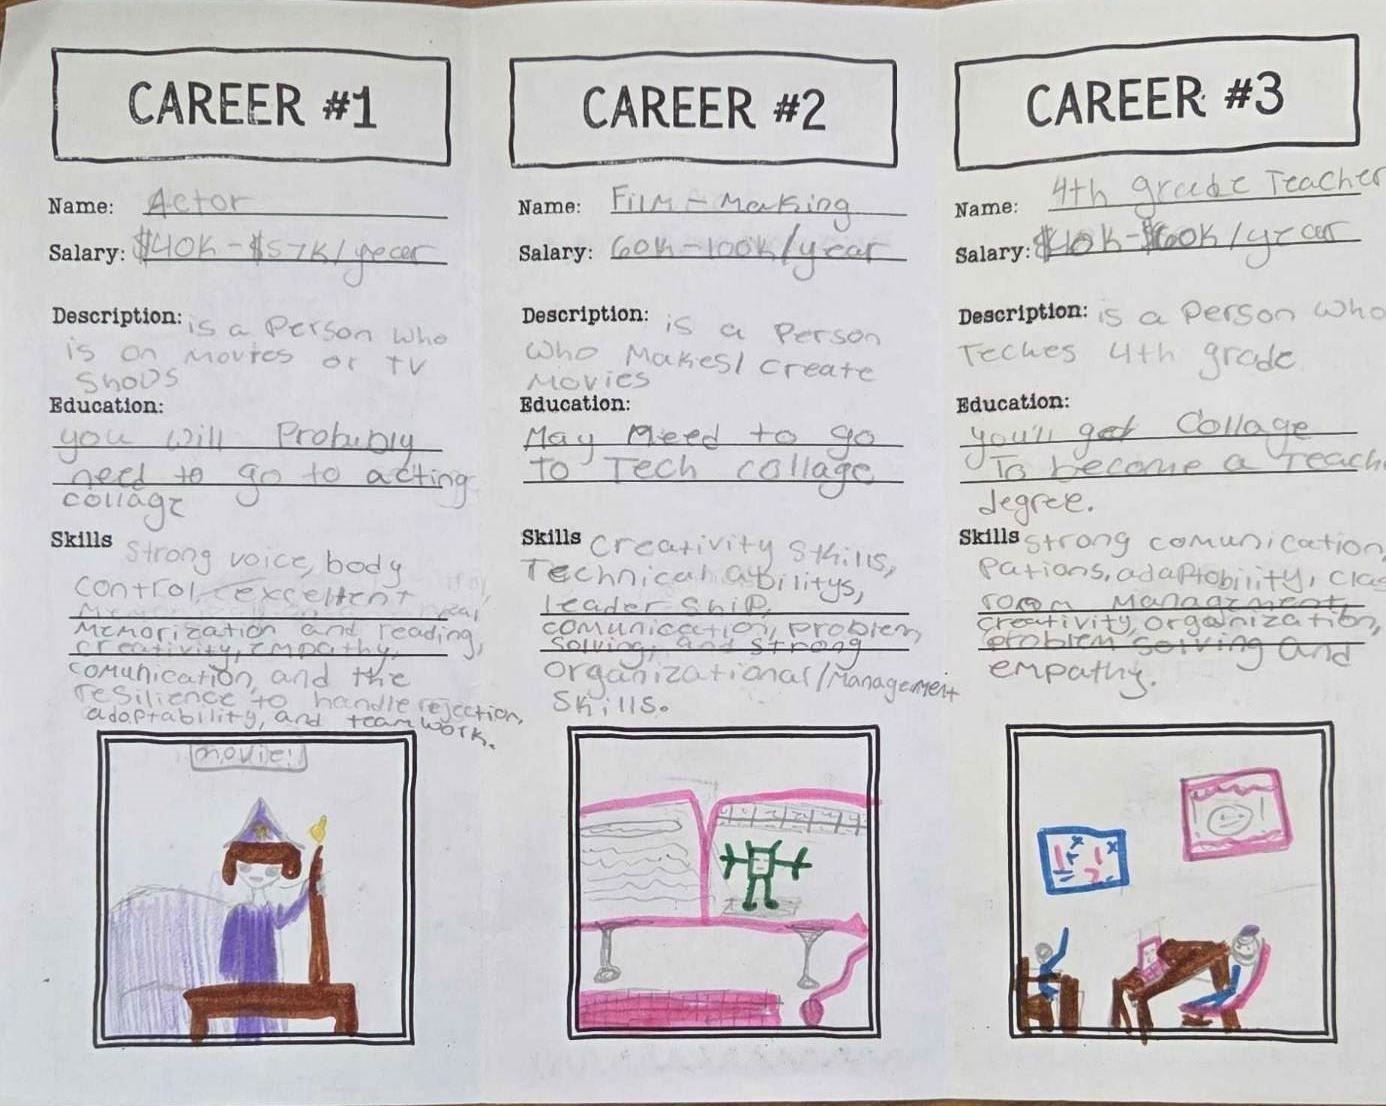 CAREER #1
Name: Actor
Salary: $40K-$57K/year
Description: is a Person who
is on movies or TV
Shows
Education:
you will Probubly
need to go to acting
collage
Skills Strong voice, body
control, excellent
Memorization and reading,
creativity, empathy,
comunication, and the
resilience to handle rejection,
adaptability, and teamwork.
movie!
CAREER #2
Name: Film-Making
Salary: 60K-100K/year
Description: is a Person
who Makes/ create
Movies
Education:
May Need to go
To Tech collage
Skills Creativity Skills,
Technical abilitys,
leader ship,
comunication, problem
Solving, and strong
organizational/Management
Skills.
CAREER #3
Name: 4th grade Teacher
Salary: $40K-$60K/year
Description: is a Person who
Teches 4th grade
Education:
you'll get Collage
To become a Teach
degree.
Skills strong comunication,
pations, adaptobility, clas
room Management,
creativity, organization,
problem solving and
empathy.